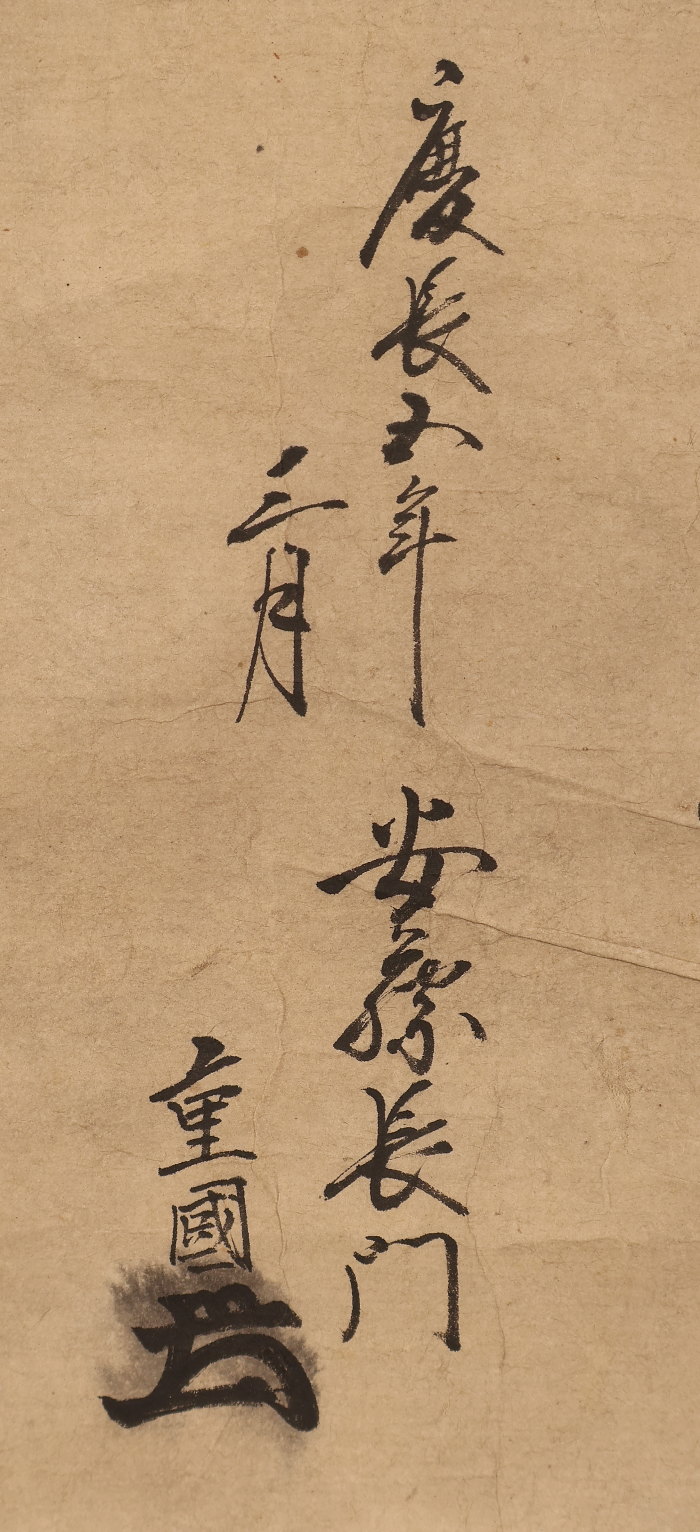 慶長五年
三月
安藤長門
重國